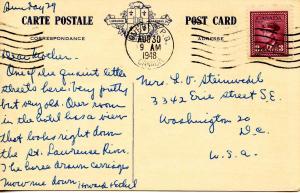 Sunday 29
CARTE POSTALE
POST CARD
CORRESPONDANCE
ADRESSE
P.Q.
AUG 30
9 AM
1948
CANADA
3 3
Dear Mother
One of the quaint little
streets here. Very pretty
but very old. Our room
in the hotel has a view
that looks right down
the St. Lawrence River.
The horse drawn carriages
mow me down.
Mrs. L. V. Steinwehl
3342 Erie Street S.E.
Washington 20
D.C.
U.S.A.